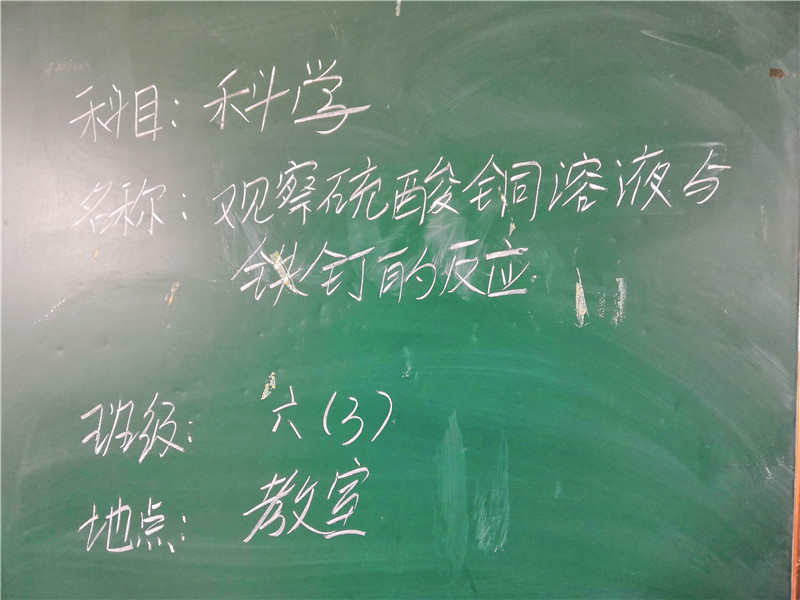 科目：科学
名称：观察硫酸铜溶液与
铁钉的反应
班级：六（3）
地点：教室